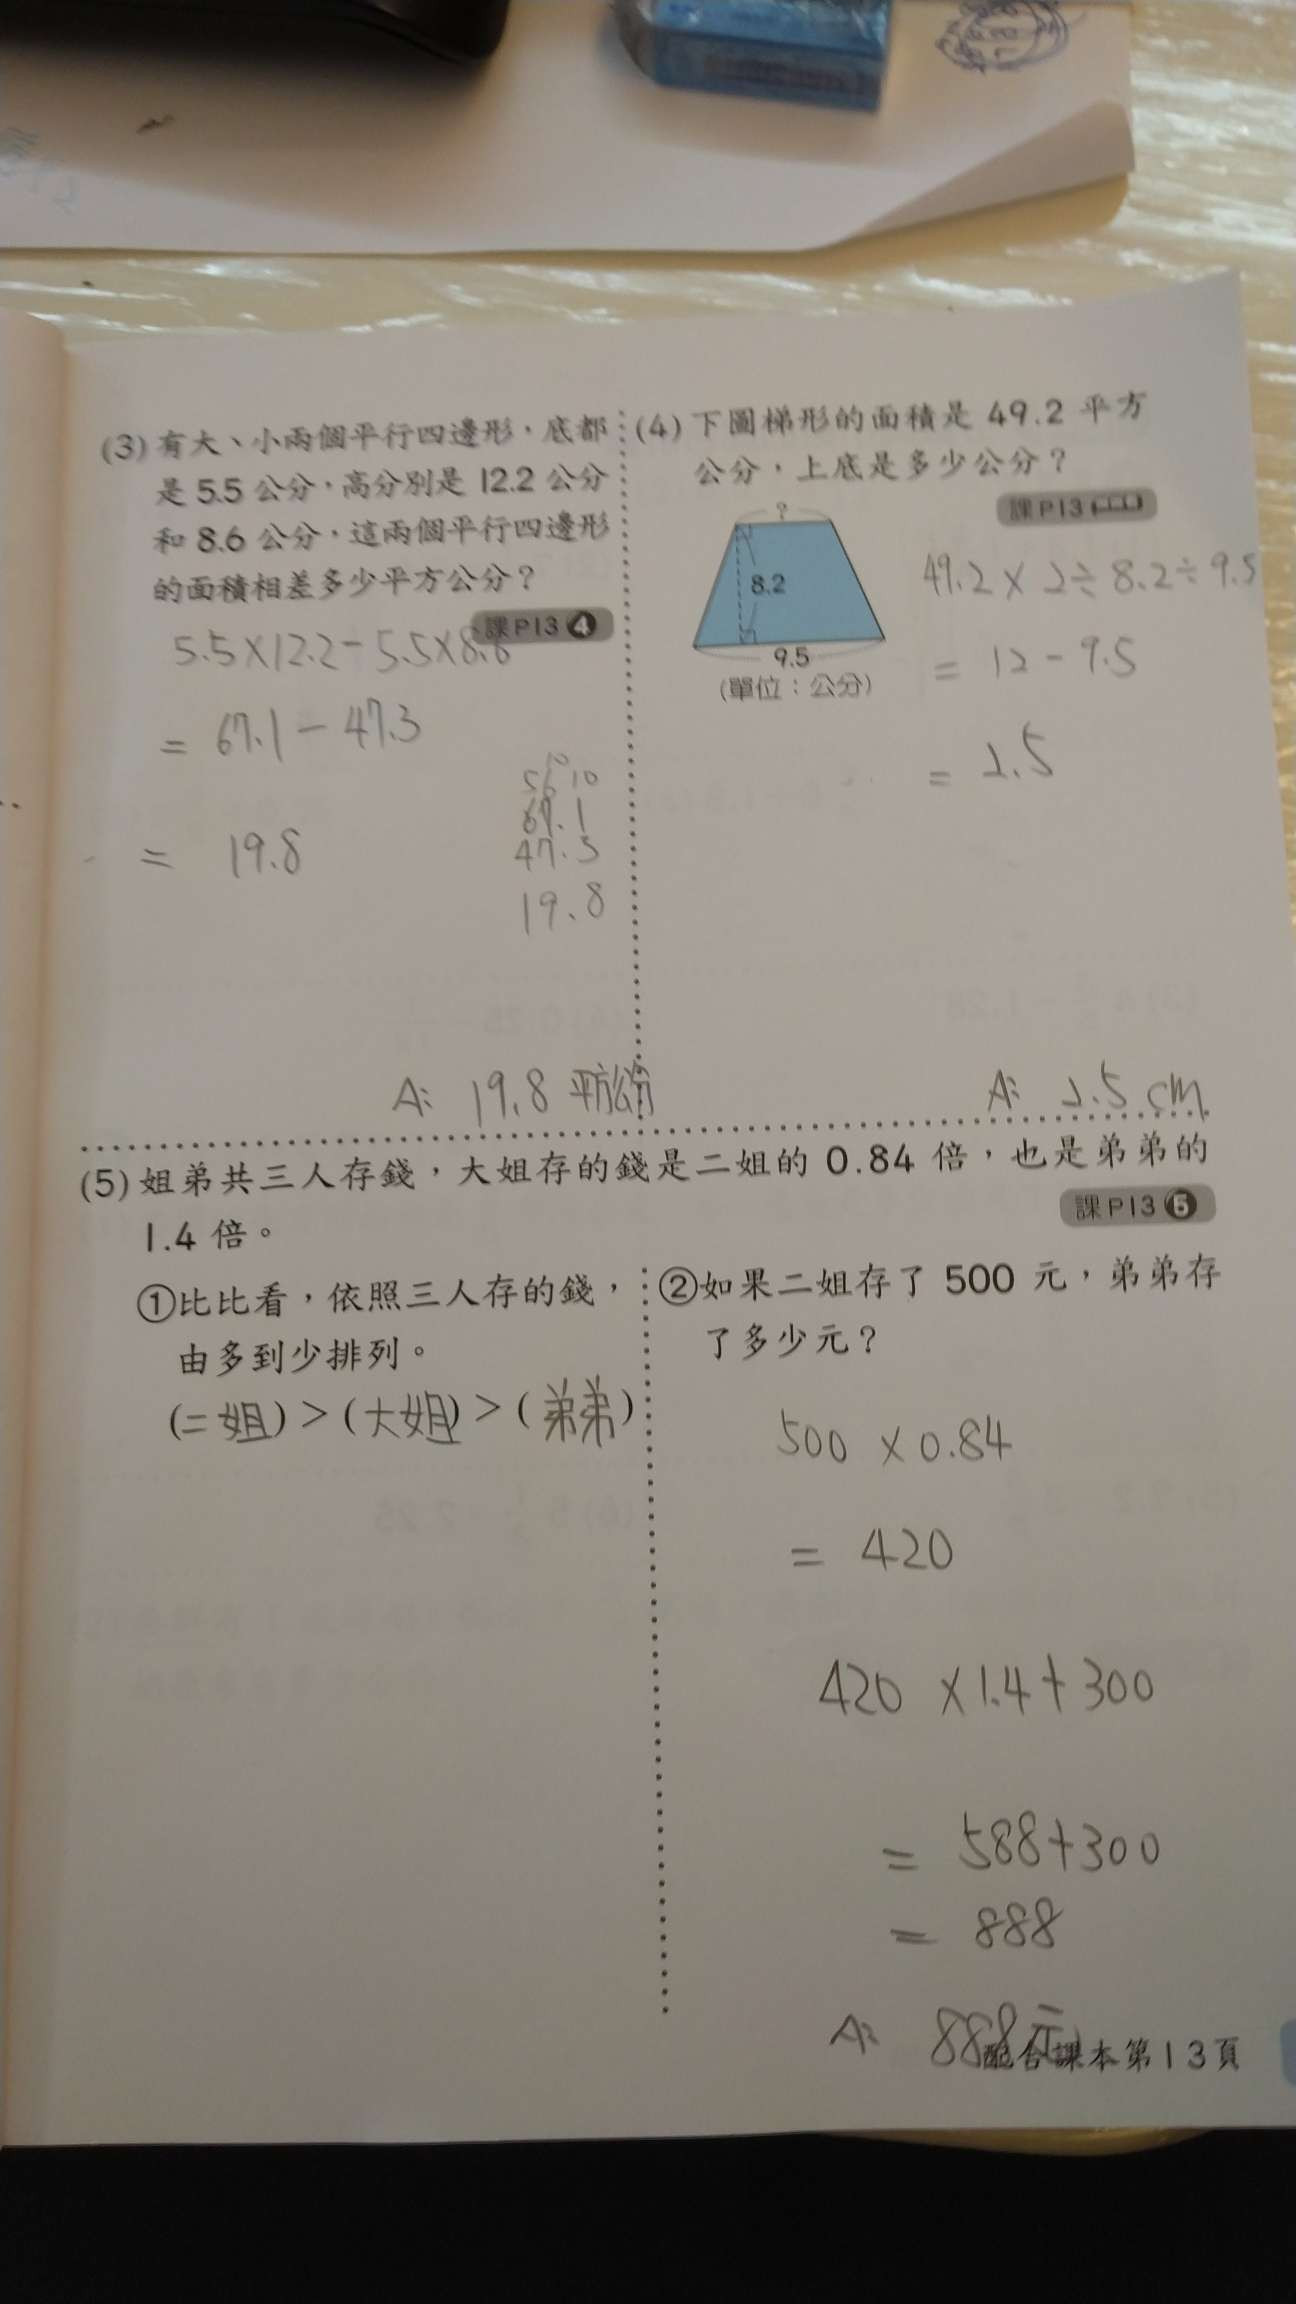 (3)有大、小兩個平行四邊形，底都
是5.5公分，高分別是12.2公分
和8.6公分，這兩個平行四邊形
的面積相差多少平方公分？
課P13❹
5.5×12.2-5.5×8.6
= 67.1-47.3
= 19.8
10
56 10
67.1
47.3
19.8
A: 19.8 平方公分
(4)下圖梯形的面積是49.2平方
公分，上底是多少公分？
課P13
?
8.2
9.5
(單位：公分)
49.2×2÷8.2÷9.5
= 12-9.5
= 2.5
A: 2.5 cm
(5)姐弟共三人存錢，大姐存的錢是二姐的0.84倍，也是弟弟的
1.4倍。
課P13❺
①比比看，依照三人存的錢，
由多到少排列。
(二姐)>(大姐)>(弟弟)
②如果二姐存了500元，弟弟存
了多少元？
500×0.84
= 420
420×1.4+300
= 588+300
= 888
A: 888元
配合課本第13頁